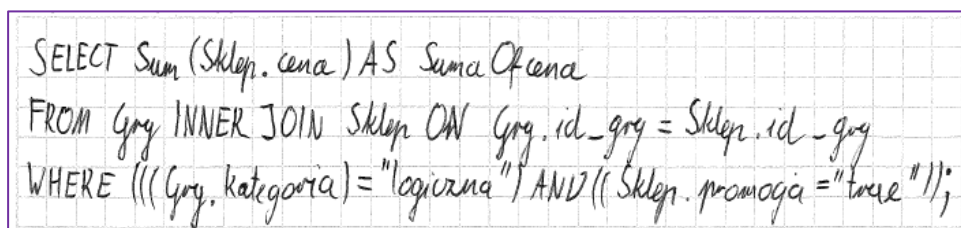 SELECT Sum(Sklep.cena) AS SumaOfcena
FROM Gry INNER JOIN Sklep ON Gry.id_gry = Sklep.id_gry
WHERE (((Gry.kategoria)="logiczna") AND((Sklep.promocja="true"));